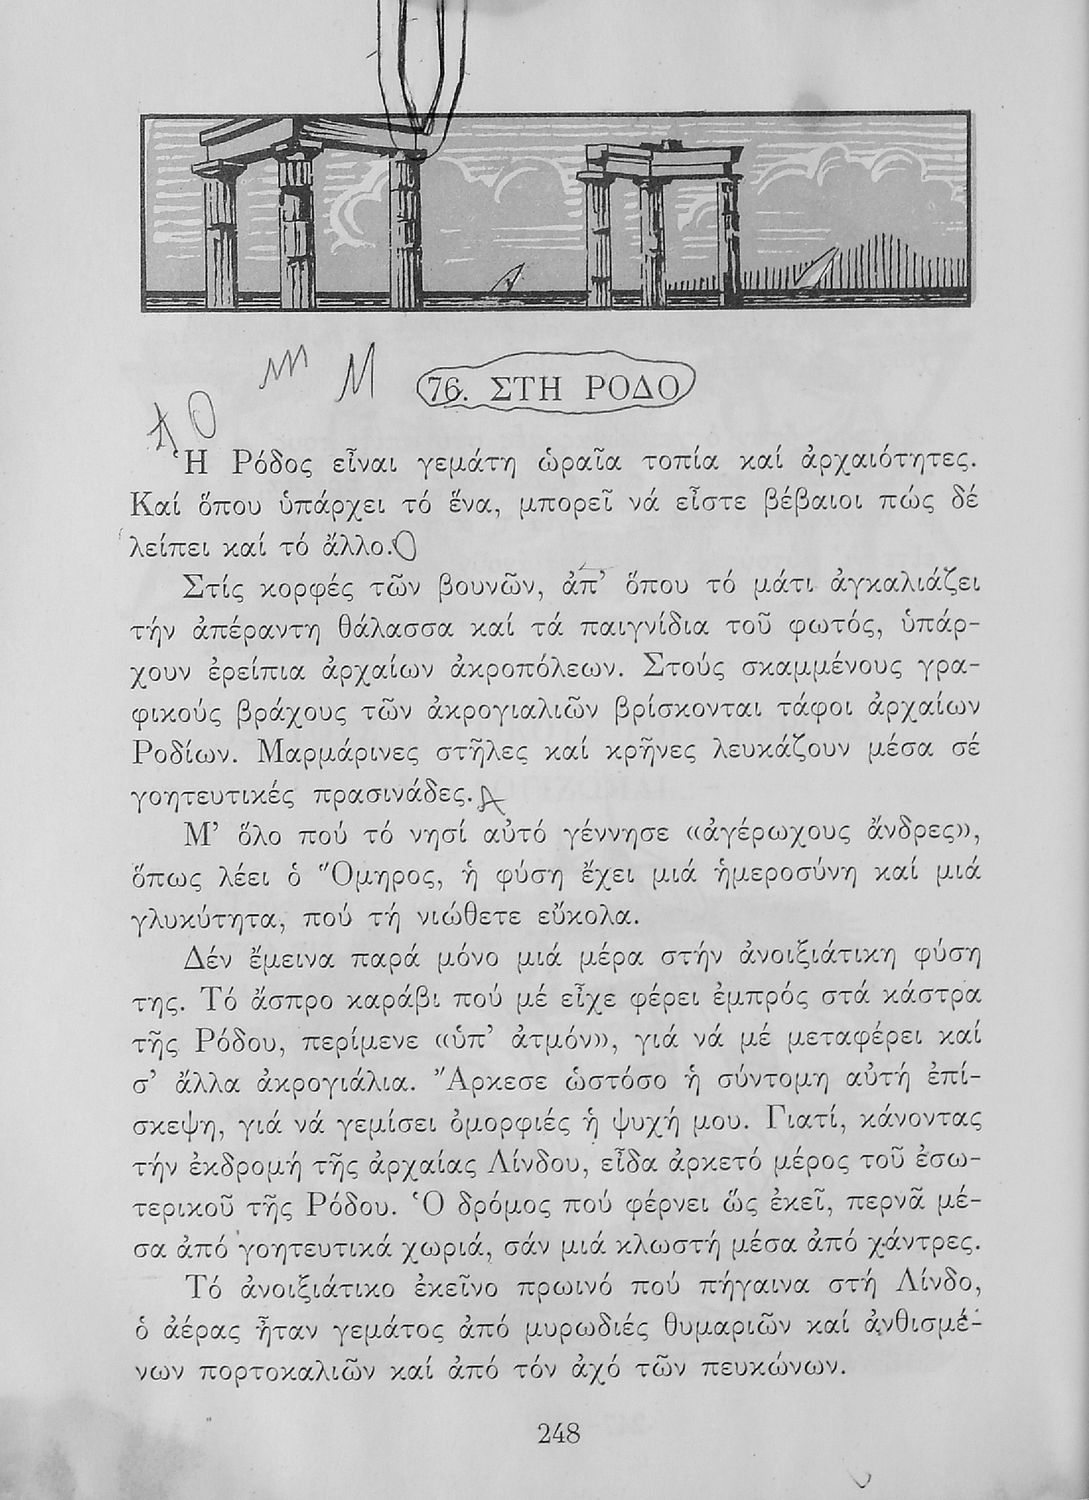 76. ΣΤΗ ΡΟΔΟ
Ἡ Ρόδος εἶναι γεμάτη ὡραῖα τοπία καί ἀρχαιότητες.
Καί ὅπου ὑπάρχει τό ἕνα, μπορεῖ νά εἶστε βέβαιοι πώς δέ
λείπει καί τό ἄλλο.
Στίς κορφές τῶν βουνῶν, ἀπ’ ὅπου τό μάτι ἀγκαλιάζει
τήν ἀπέραντη θάλασσα καί τά παιγνίδια τοῦ φωτός, ὑπάρ-
χουν ἐρείπια ἀρχαίων ἀκροπόλεων. Στούς σκαμμένους γρα-
φικούς βράχους τῶν ἀκρογιαλιῶν βρίσκονται τάφοι ἀρχαίων
Ροδίων. Μαρμάρινες στῆλες καί κρῆνες λευκάζουν μέσα σέ
γοητευτικές πρασινάδες.
Μ’ ὅλο πού τό νησί αὐτό γέννησε «ἀγέρωχους ἄνδρες»,
ὅπως λέει ὁ Ὅμηρος, ἡ φύση ἔχει μιά ἡμεροσύνη καί μιά
γλυκύτητα, πού τή νιώθετε εὔκολα.
Δέν ἔμεινα παρά μόνο μιά μέρα στήν ἀνοιξιάτικη φύση
της. Τό ἄσπρο καράβι πού μέ εἶχε φέρει ἐμπρός στά κάστρα
τῆς Ρόδου, περίμενε «ὑπ’ ἀτμόν», γιά νά μέ μεταφέρει καί
σ’ ἄλλα ἀκρογιάλια. Ἄρκεσε ὡστόσο ἡ σύντομη αὐτή ἐπί-
σκεψη, γιά νά γεμίσει ὀμορφιές ἡ ψυχή μου. Γιατί, κάνοντας
τήν ἐκδρομή τῆς ἀρχαίας Λίνδου, εἶδα ἀρκετό μέρος τοῦ ἐσω-
τερικοῦ τῆς Ρόδου. Ὁ δρόμος πού φέρνει ὥς ἐκεῖ, περνᾶ μέ-
σα ἀπό γοητευτικά χωριά, σάν μιά κλωστή μέσα ἀπό χάντρες.
Τό ἀνοιξιάτικο ἐκεῖνο πρωινό πού πήγαινα στή Λίνδο,
ὁ ἀέρας ἦταν γεμάτος ἀπό μυρωδιές θυμαριῶν καί ἀνθισμέ-
νων πορτοκαλιῶν καί ἀπό τόν ἀχό τῶν πευκώνων.
248